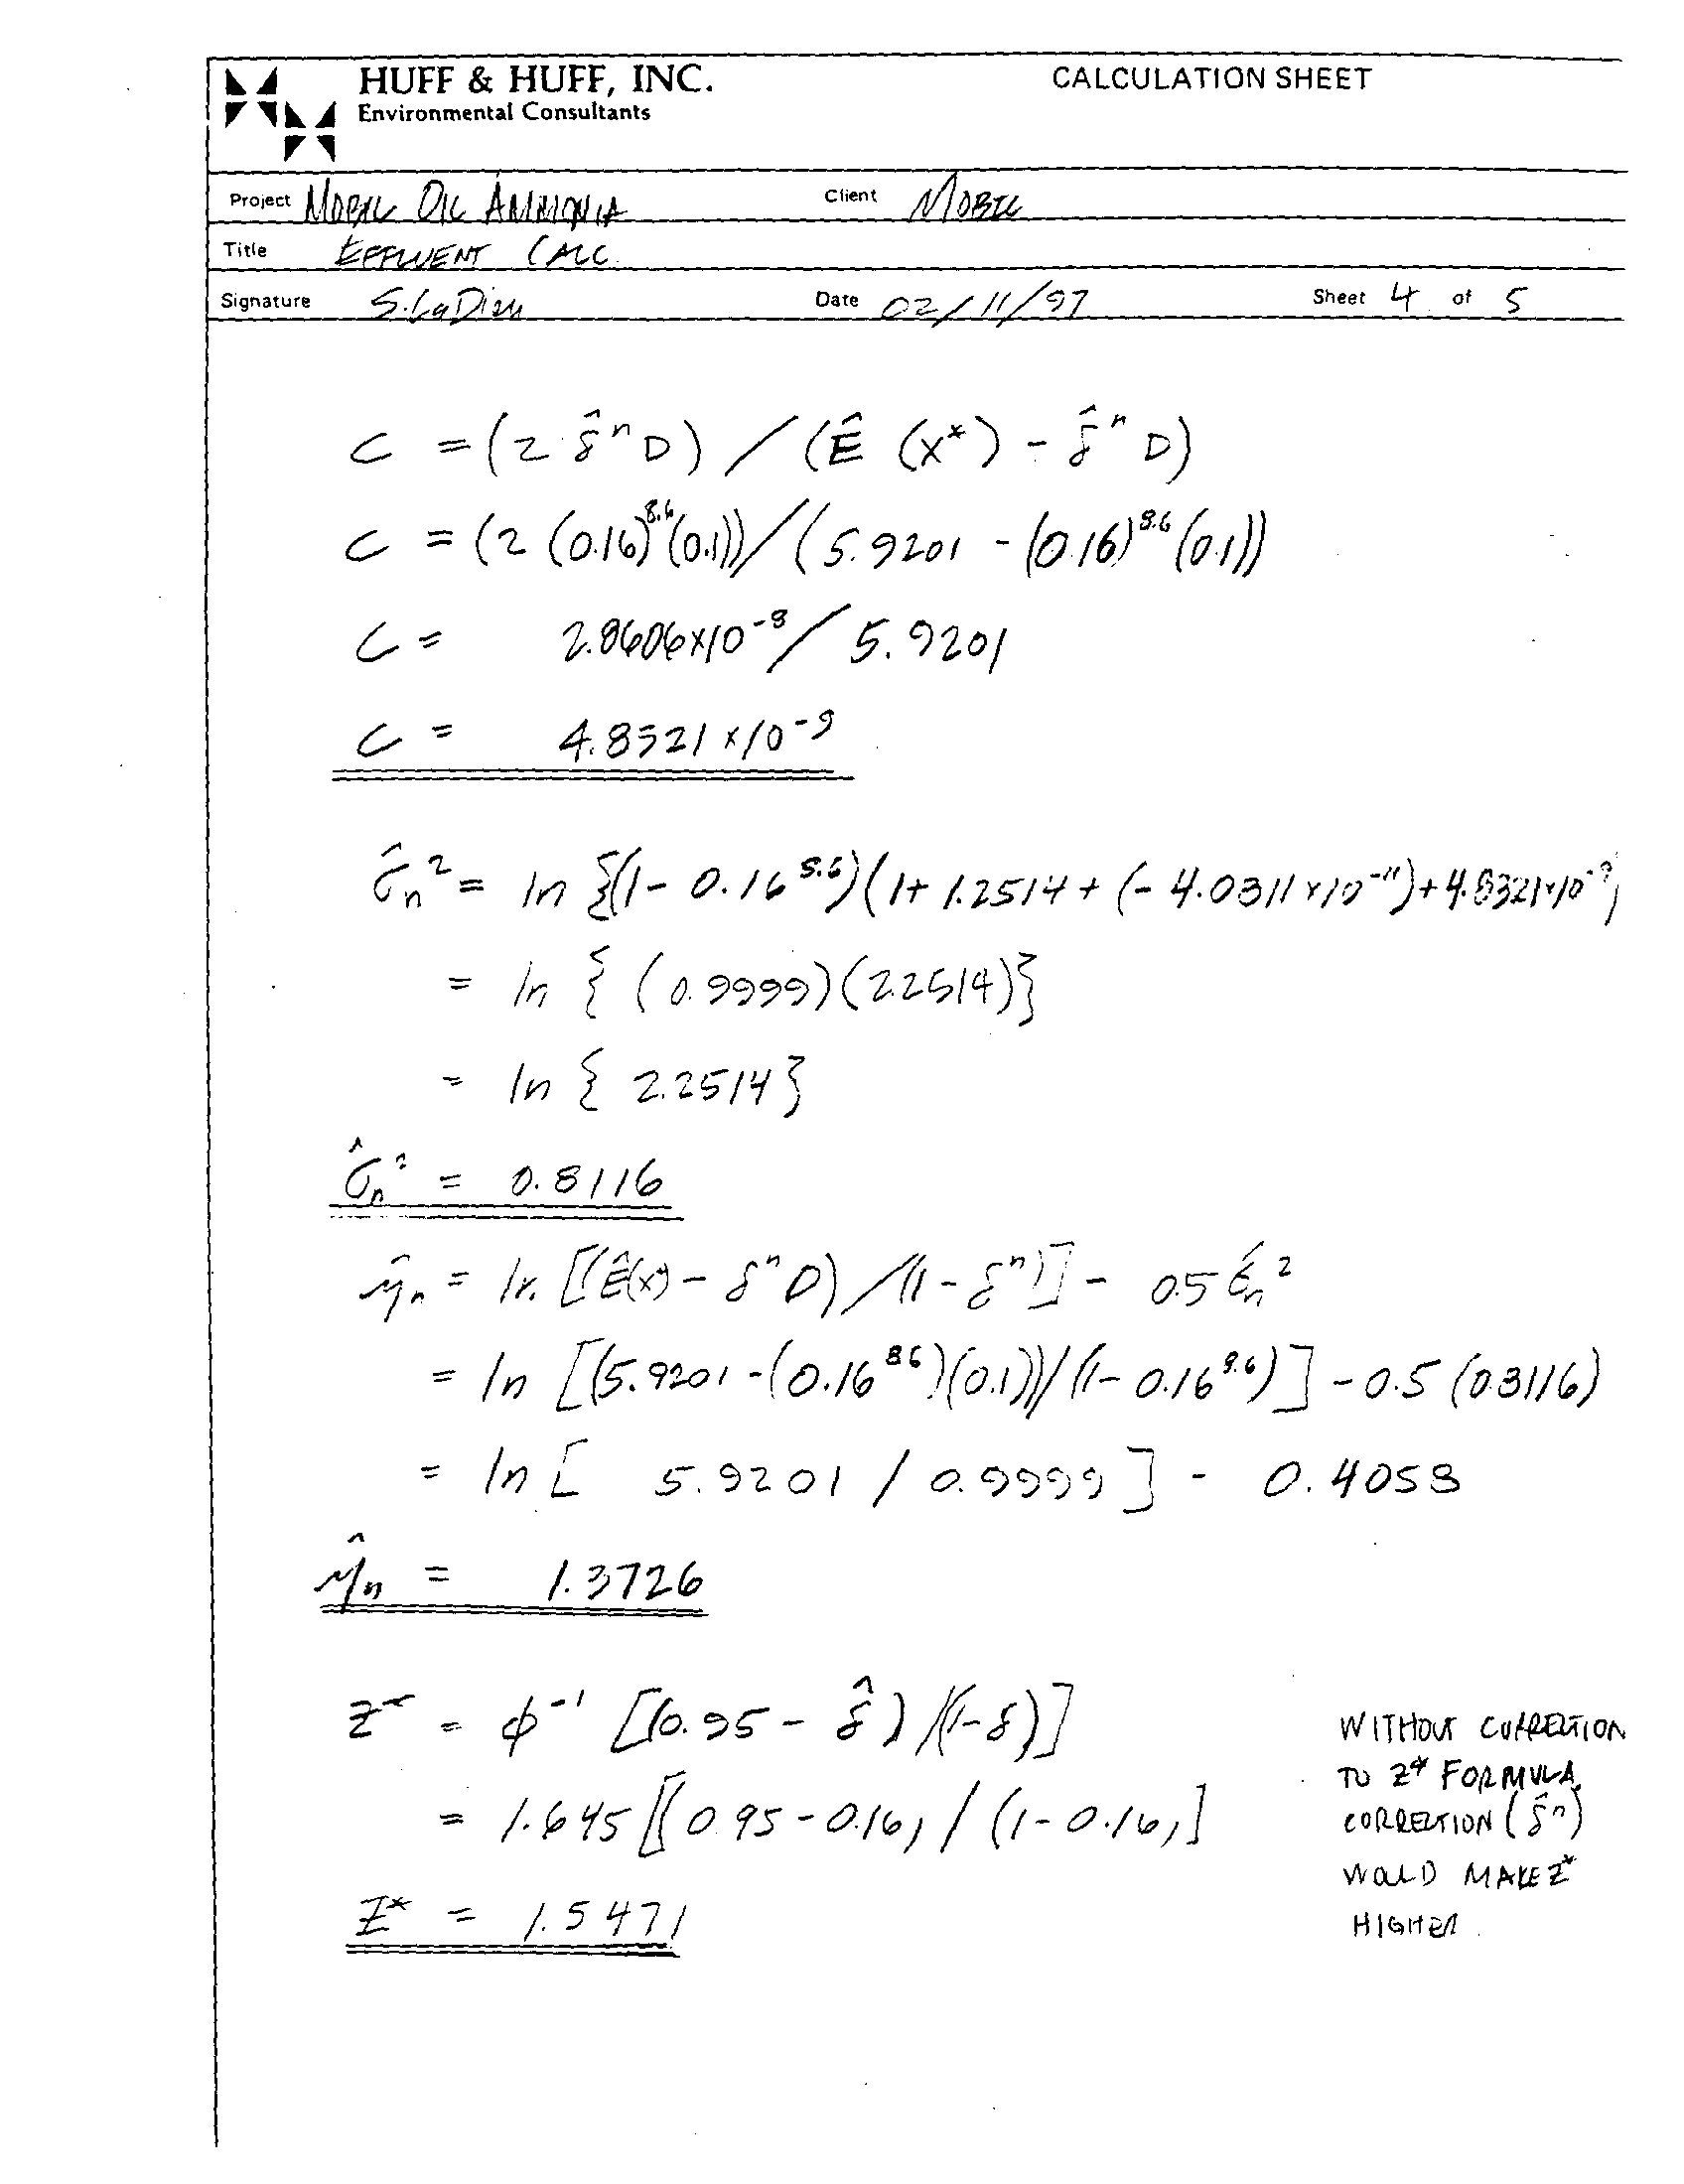 HUFF & HUFF, INC.
Environmental Consultants
CALCULATION SHEET
Project MOBIL OIL AMMONIA Client MOBIL
Title EFFLUENT CALC.
Signature Date 02/11/97 Sheet 4 of 5
C = (2 δ̂ⁿ D) / (Ê (X*) - δ̂ⁿ D)
C = (2 (0.16)^8.6 (0.1)) / (5.9201 - (0.16)^8.6 (0.1))
C = 2.8606x10^-8 / 5.9201
C = 4.8321 x10^-9
σ̂n² = ln {(1 - 0.16^8.6)(1 + 1.2514 + (-4.0311 x10^-11) + 4.8321x10^-9)
= ln { (0.9999)(2.2514)}
= ln { 2.2514}
σ̂n² = 0.8116
μ̂n = ln [(Ê(x*) - δⁿ D) / (1 - δⁿ)] - 0.5 σ̂n²
= ln [(5.9201 - (0.16^8.6)(0.1)) / (1 - 0.16^8.6)] - 0.5 (0.8116)
= ln [ 5.9201 / 0.9999 ] - 0.4058
μ̂n = 1.3726
Z* = φ^-1 [(0.95 - δ̂) / (1-δ)]
= 1.645 [(0.95 - 0.16) / (1 - 0.16)]
Z* = 1.5471
WITHOUT CORRECTION
TO Z* FORMULA,
CORRECTION (δ̂ⁿ)
WOULD MAKE Z*
HIGHER.